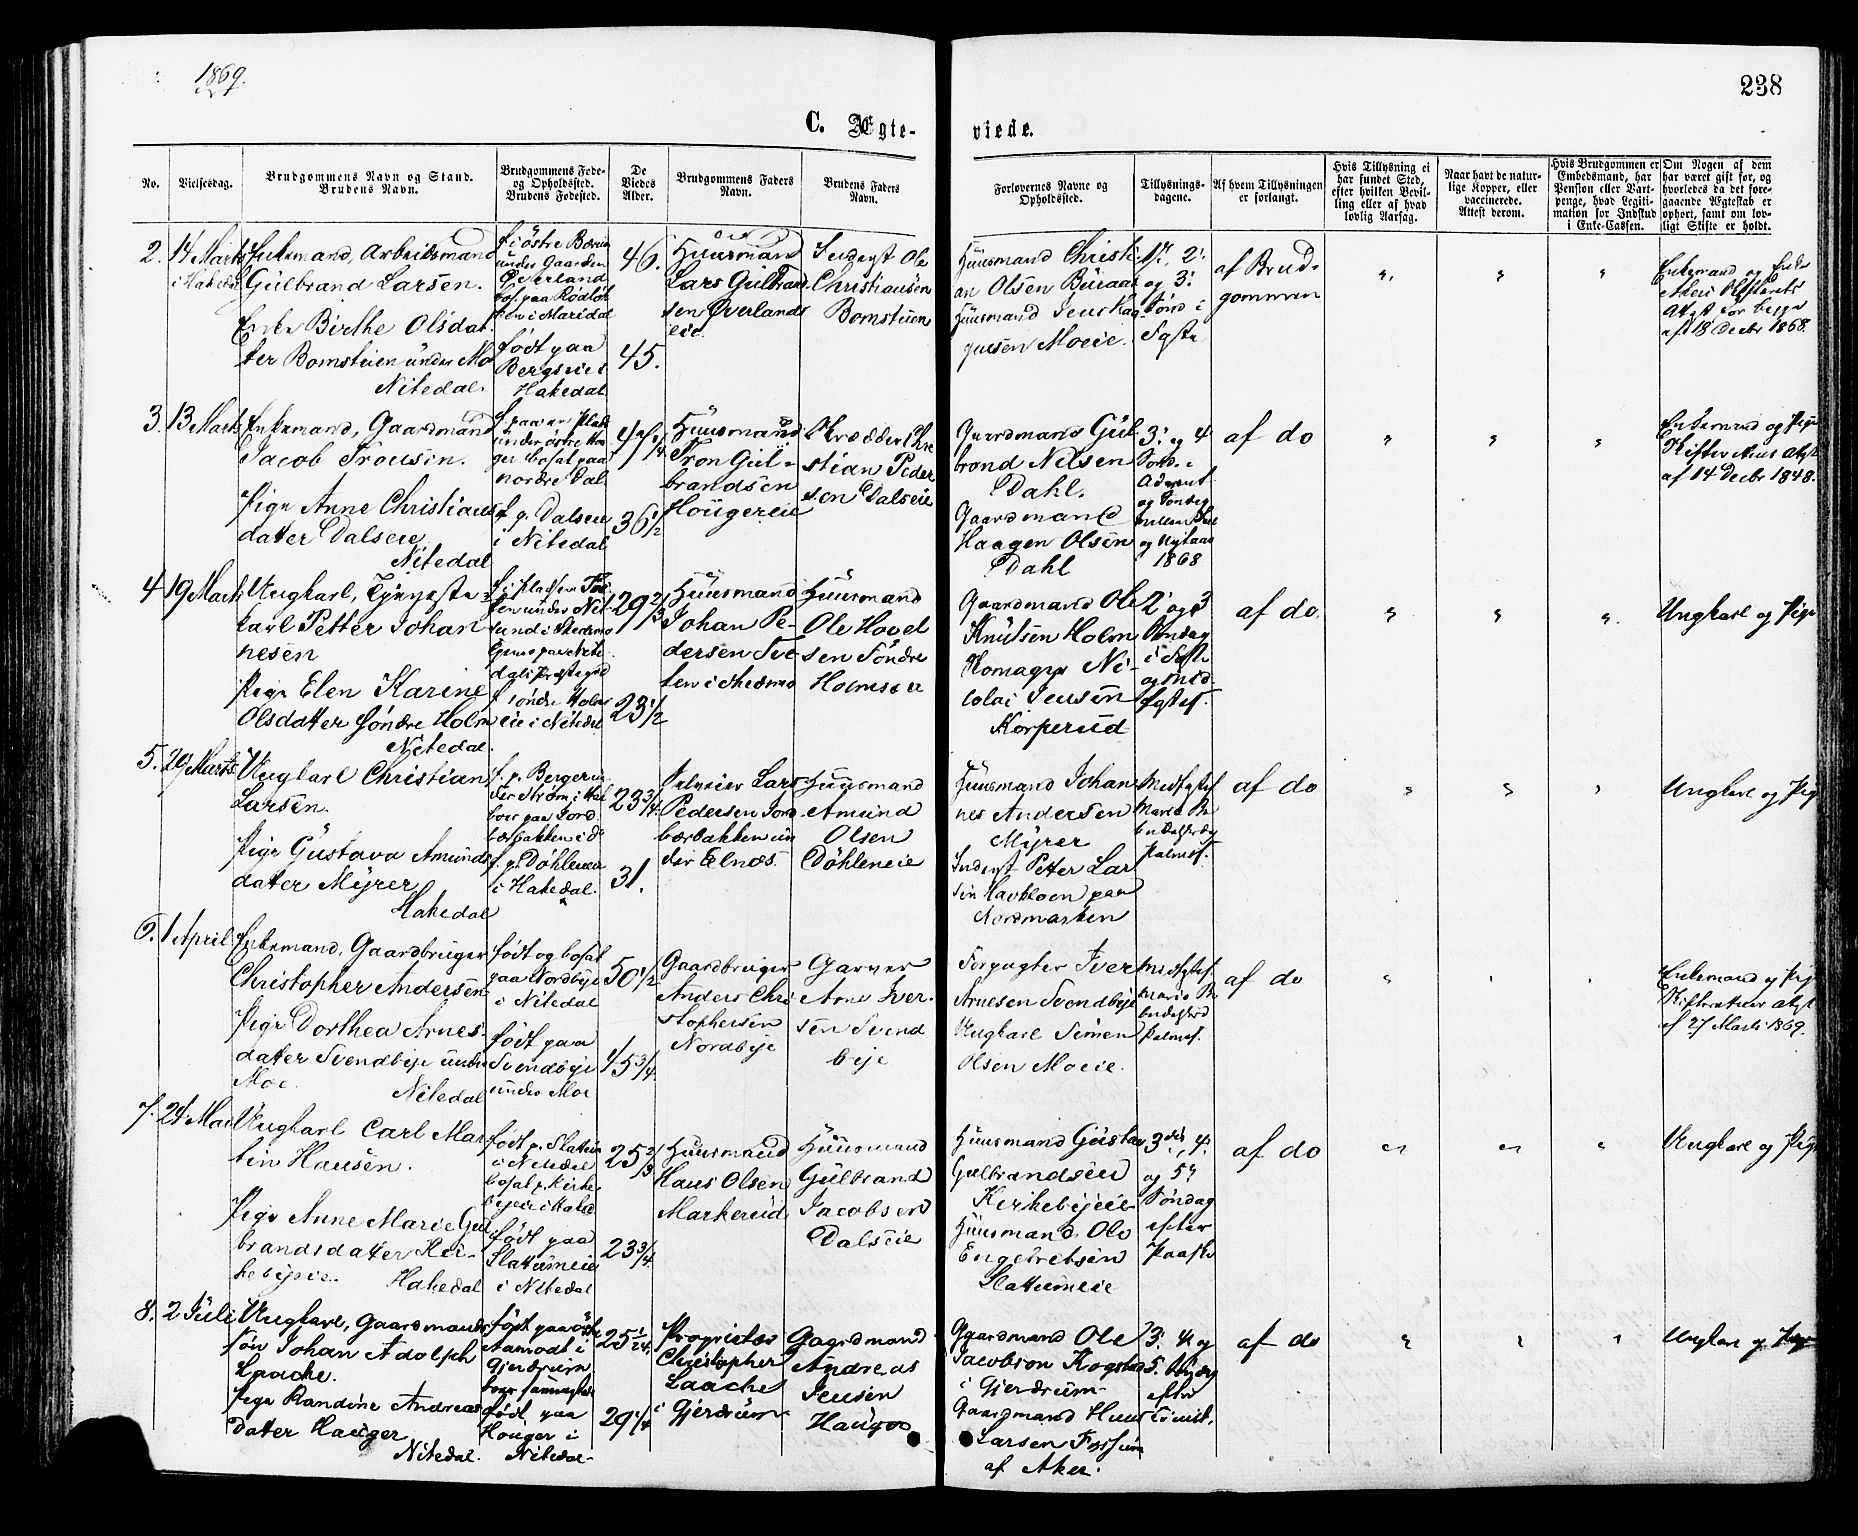 1869.
238
C. Ægte-
viede.
No.
Vielsesdag.
Brudgommens Navn og Stand.
Brudens Navn.
Brudgommens Føde-
og Opholdssted.
Brudens Fødested.
De
Viedes
Alder.
Brudgommens Faders
Navn.
Brudens Faders
Navn.
Forlovernes Navne og
Opholdssted.
Tillysnings-
dagene.
Af hvem Tillysningen
er forlangt.
Hvis Tillysning ei
har fundet Sted,
efter hvilken Bevil-
ling eller af hvad
lovlig Aarsag.
Naar havt de natur-
lige Kopper, eller
vaccinerede.
Attest derom.
Hvis Brudgommen er
Embedsmand, har
Pension eller Vart-
penge, hvad Legiti-
mation for Indskud
i Enke-Cassen.
Om Nogen af dem
har været gift før, og
hvorledes da det fore-
gaaende Ægteskab er
ophørt, samt om lov-
ligt Skifte er holdt.
2.
14 Marts
i Hakedal
Enkemand, Arbeidsmand
Gulbrand Larsen.
Enke Birthe Olsdat-
ter Bomstuen under Mo
Nitedal.
f. i østre Bærum
under Gaarden
Øverland
bos. paa Rødløk
ken i Maridal
født paa
Bergseie i
Hakedal
46.
45.
Huusmand
Lars Gulbrand
sen Øverlands
eie
Inderst Ole
Christiansen
Bomstuen
Huusmand Christi-
an Olsen Buraas
Huusmand Jens Mag-
nusen Moeie.
1ste, 2.
og 3.
Sønd. i
Faste
af Brud-
gommen
Enkemand og Enke
Akers Skifterets
Attest for begge
af 18 Decbr 1868.
3.
13 Marts
Enkemand, Gaardmand
Jacob Tronsen.
Pige Anne Christians
datter Dalseie
Nitedal
f. paa en Plads
under østre Hau
ger bosat paa
nordre Dal
f. p. Dalseie
i Nitedal
36 1/2
Huusmand
Tron Gul-
brandsen
Hougereie
Skrædder Chri
stian Peder
sen Dalseie
Gaardmand Gul
brand Nilsen
Dahl.
Gaardmand
Haagen Olsen
Dahl
3. og 4
Sønd. i
Advent
og Søndag
mellem Juul
og Nytaar
1868
af do
Enkemand og Pige
Skifterettens Attest
af 14 Decbr 1848.
4
19 Marts
Ungkarl, Tjeneste-
karl Petter Johan
nesen
Pige Elen Karine
Olsdatter Søndre Holm
Nitedal.
29 2/3
23 1/2
Huusmand
Johan Pe-
dersen Tve-
ten i Skedsmo
Huusmand
Ole Hovel
sen Søndre
Holmseie
Gaardmand Ole
Knutsen Holm
Komager Ni-
colai Jensen
Korperud
2. og 3
Søndag
i Faste
og Mid-
fastes.
af do.
Ungkarl og Pige
5.
29 Marts
Ungkarl Christian
Larsen.
Pige Gustava Amunds
datter Myrer
Hakedal
f. p. Bergerun
der Strøm i Hol
boer paa Jord
bærbakken i do
f. p. Døhleneie
i Hakedal.
23 3/4
31.
Selveier Lars
Pedersen Jord
bærbakken un
der Elnæs
Huusmand
Amund
Olsen
Døhleneie
Huusmand Johan
nes Andersen
Myrer
Inderst Petter Lar
sen Havkloen paa
Nordmarken
Midfastes.
Maria Be
budelsesdag
Palmes.
af do
Ungkarl og Pige
6.
1 April
Enkemand, Gaardbruger
Christopher Andersen
Pige Dorthea Arnes-
datter Svendbye under
Moe.
Nitedal
født og bosat
paa Nordbye
i Nitedal
født paa
Svendbye
under Moe
50 1/2
45 3/4
Gaardbruger
Anders Chri
stophersen
Nordbye
Garver
Arne Iver-
sen Svend
bye
Forpagter Iver
Arnesen Svendbye
Ungkarl Simen
Olsen Moeie.
Midfastes.
Maria Be
budelsesd
Palmes.
af do
Enkemand og Pige
Skifterettens Attest
af 27 Marts 1869.
7.
24 Mai
Ungkarl Carl Mar
tin Hansen.
Pige Anne Marie Gul
brandsdatter Kir-
kebyeie
Hakedal
født p. Slattum
i Nitedal
bosat p. Kirke
byeie i Haked
født paa
Slattumeie
i Nitedal
25 2/3
23 3/4
Huusmand
Hans Olsen
Markerud
Huusmand
Gulbrand
Jacobsen
Dalseie
Huusmand Gustav
Gulbrandsen
Kirkebyeie
Huusmand Ole
Engebretsen
Slattumeie
3die, 4.
og 5.
Søndag
efter
Paaske
af do
Ungkarl og Pige
8.
2 Juli
Ungkarl, Gaardmands
søn Johan Adolph
Laache.
Pige Randine Andreas
datter Hauger
Nitedal.
født paa østre
Aamodt i
Gjerdrum
boer sammesteds
født paa
Houger i
Nitedal
25 1/24
29 1/4
Proprietær
Christopher
Laache
i Gjerdrum
Gaardmand
Andreas
Jensen
Hauger
Gaardmand Ole
Jacobson Kogstad
i Gjerdrum
Gaardmand Hans
Larsen Fossum
af Aker.
3. 4 og
5. Søndag
efter
Trinit.
af do
Ungkarl og Pige